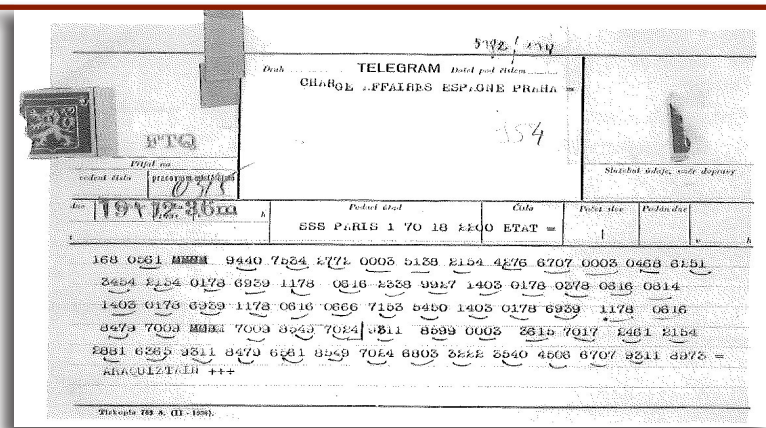 5792/
Druh TELEGRAM Došel pod číslem
CHARGE AFFAIRES ESPAGNE PRAHA =
354
FTQ
Přijal na
vedení číslo
pracovním místě
035
Služební údaje, směr dopravy
dne 19 12 36 h
Podací úřad Číslo Počet slov Podán dne
SSS PARIS 1 70 18 2200 ETAT =
v h
168 0561 9440 7534 2772 0003 5138 2154 4276 6707 0003 0468 6251
3454 2154 0178 6939 1178 0616 2338 9927 1403 0178 0378 0616 0814
1403 0178 6939 1178 0616 0666 7153 5450 1403 0178 6939 1178 0616
8479 7009 7009 8549 7024 9311 8599 0003 3615 7017 2461 2154
2881 6365 9311 8479 6561 8549 7024 6803 3222 3540 4506 6707 9311 8973 =
ARAQUIZTAIN +++
Tiskopis 763 A. (II - 1936).